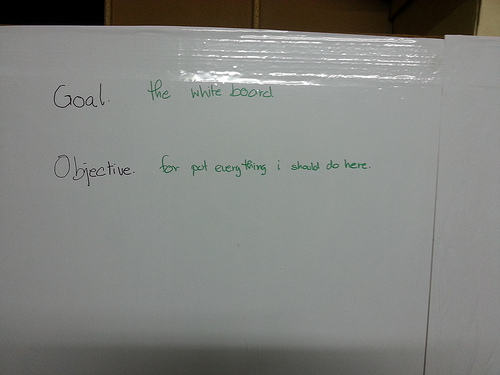 Goal. the white board
Objective. for pot everything i should do here.